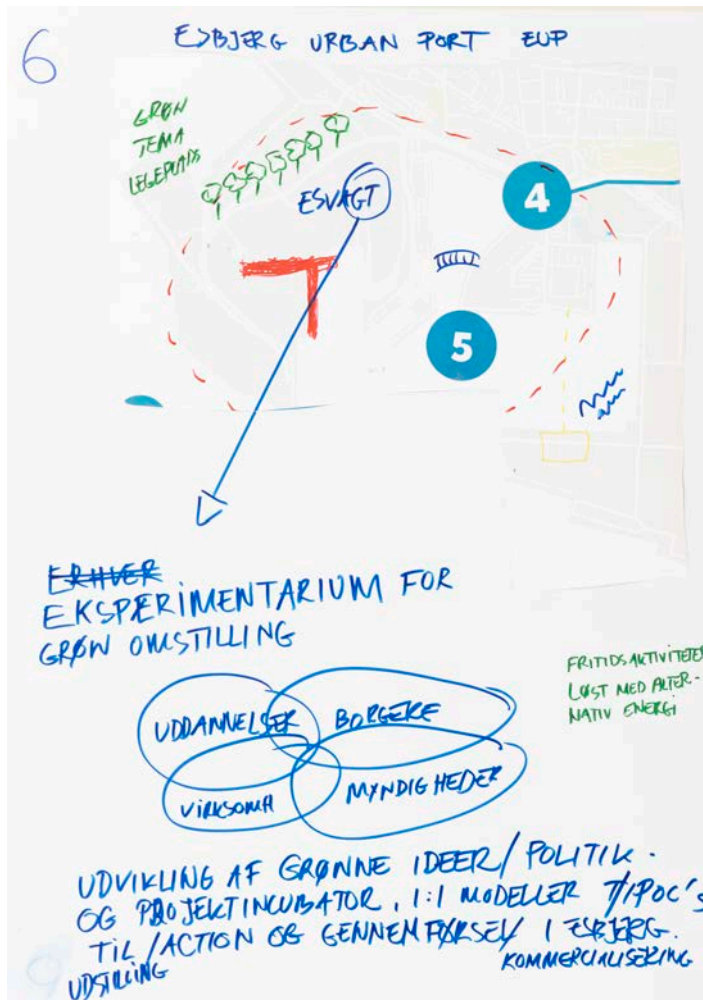 6
ESBJERG URBAN PORT EUP
GRØN
TEMA
LEGEPLADS
ESVAGT
4
5
ERHVER
EKSPERIMENTARIUM FOR
GRØN OMSTILLING
FRITIDSAKTIVITETER
LØST MED ALTER-
NATIV ENERGI
UDDANNELSER
BORGERE
VIRKSOMH
MYNDIGHEDER
UDVIKLING AF GRØNNE IDEER/POLITIK.
OG PROJEKTINCUBATOR, 1:1 MODELLER
TIL/ACTION OG GENNEMFØRSEL/ I ESBJERG.
UDSTILLING
KOMMERCIALISERING